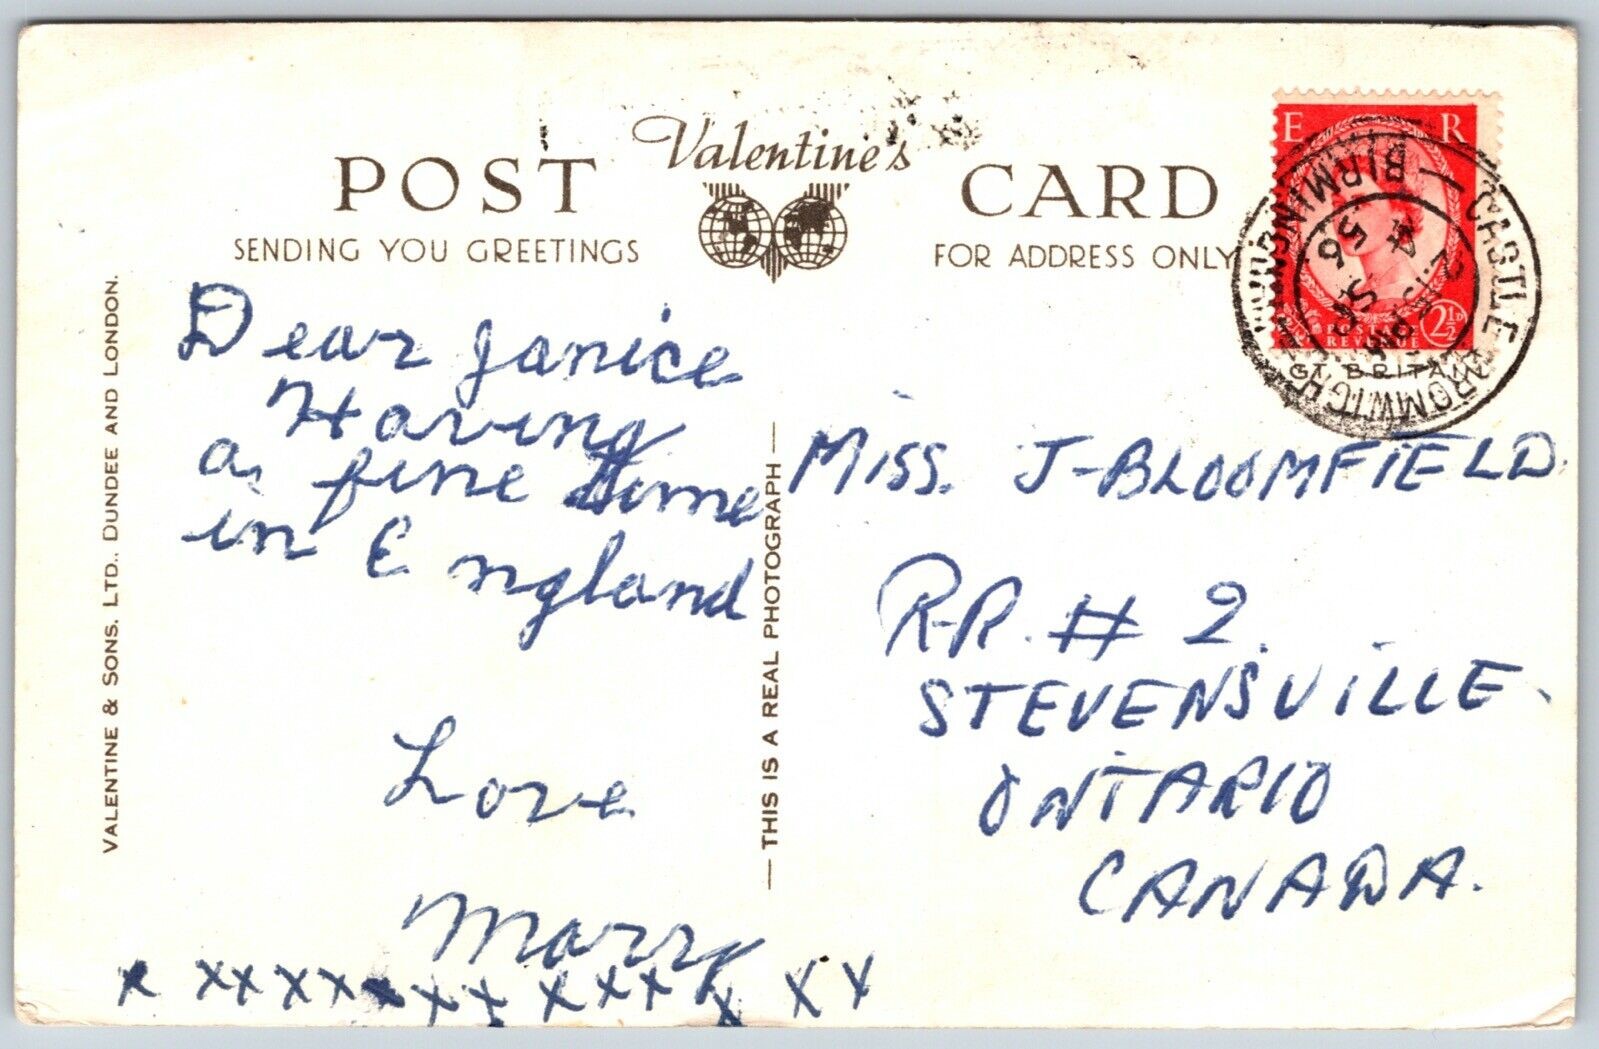 Valentine's
POST CARD
SENDING YOU GREETINGS
FOR ADDRESS ONLY
E R
POSTAGE
REVENUE
2½D
CASTLE BROMWICH
BIRMINGHAM
4
SP
56
GT. BRITAIN
VALENTINE & SONS, LTD., DUNDEE AND LONDON.
Dear Janice
Having
a fine time
in England
Love
Mary
x xxxxxxx xxxx x x x
— THIS IS A REAL PHOTOGRAPH —
MISS. J-BLOOMFIELD.
R.R. # 2.
STEVENSVILLE.
ONTARIO
CANADA.